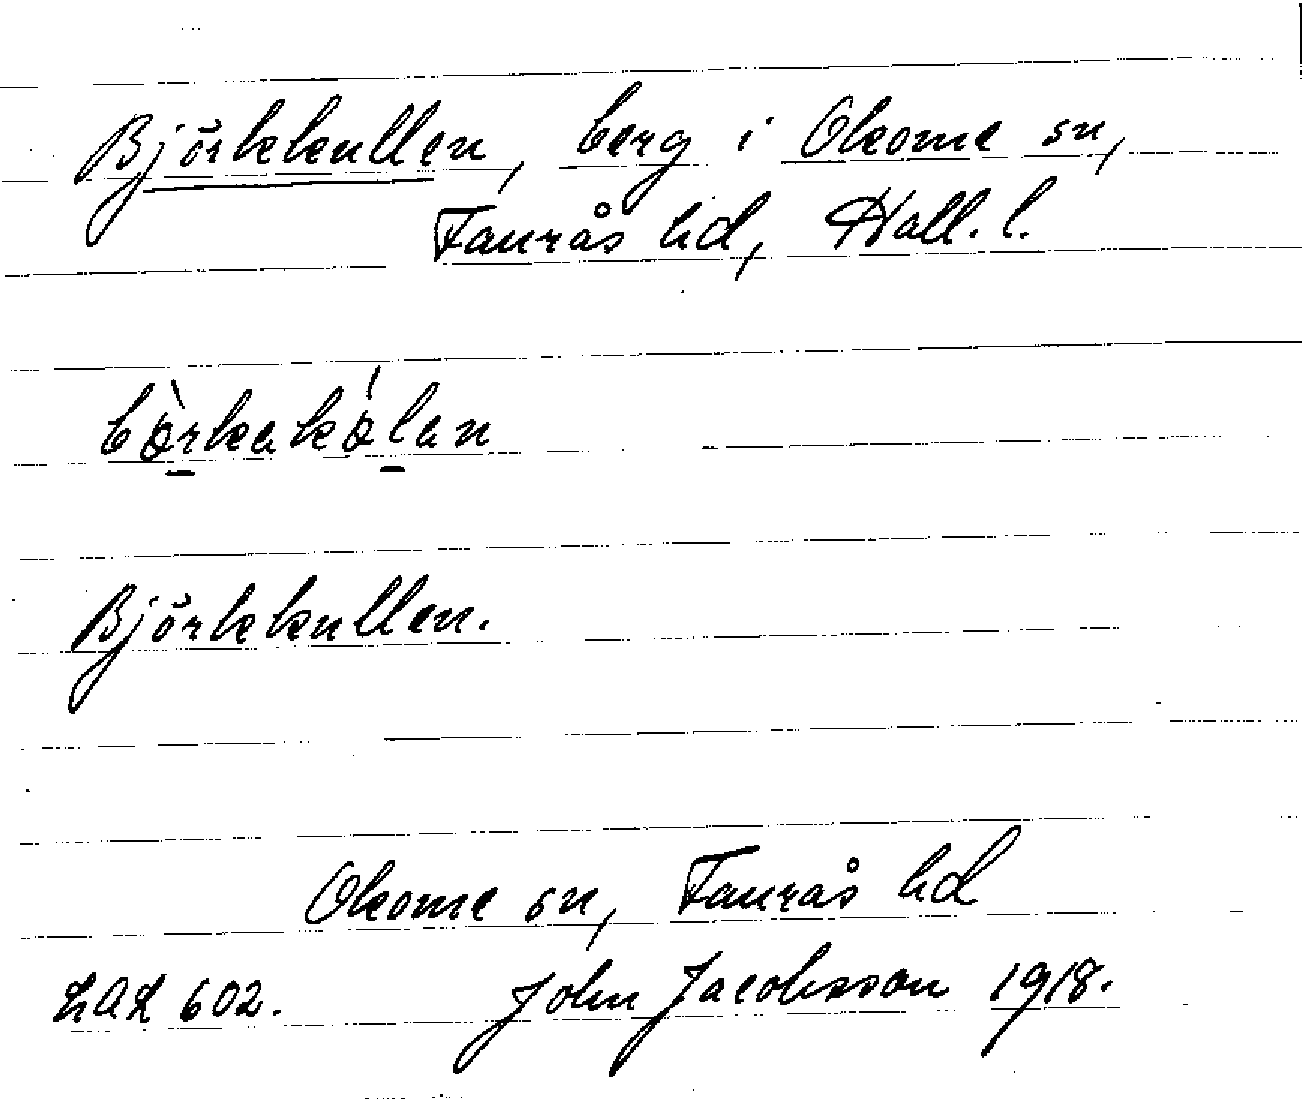 Björkkullen, berg i Okome sn,
Faurås hd, Hall. l.
bòrkakólan
Björkkullen.
Okome sn, Faurås hd
LAL 602. John Jacobsson 1918.